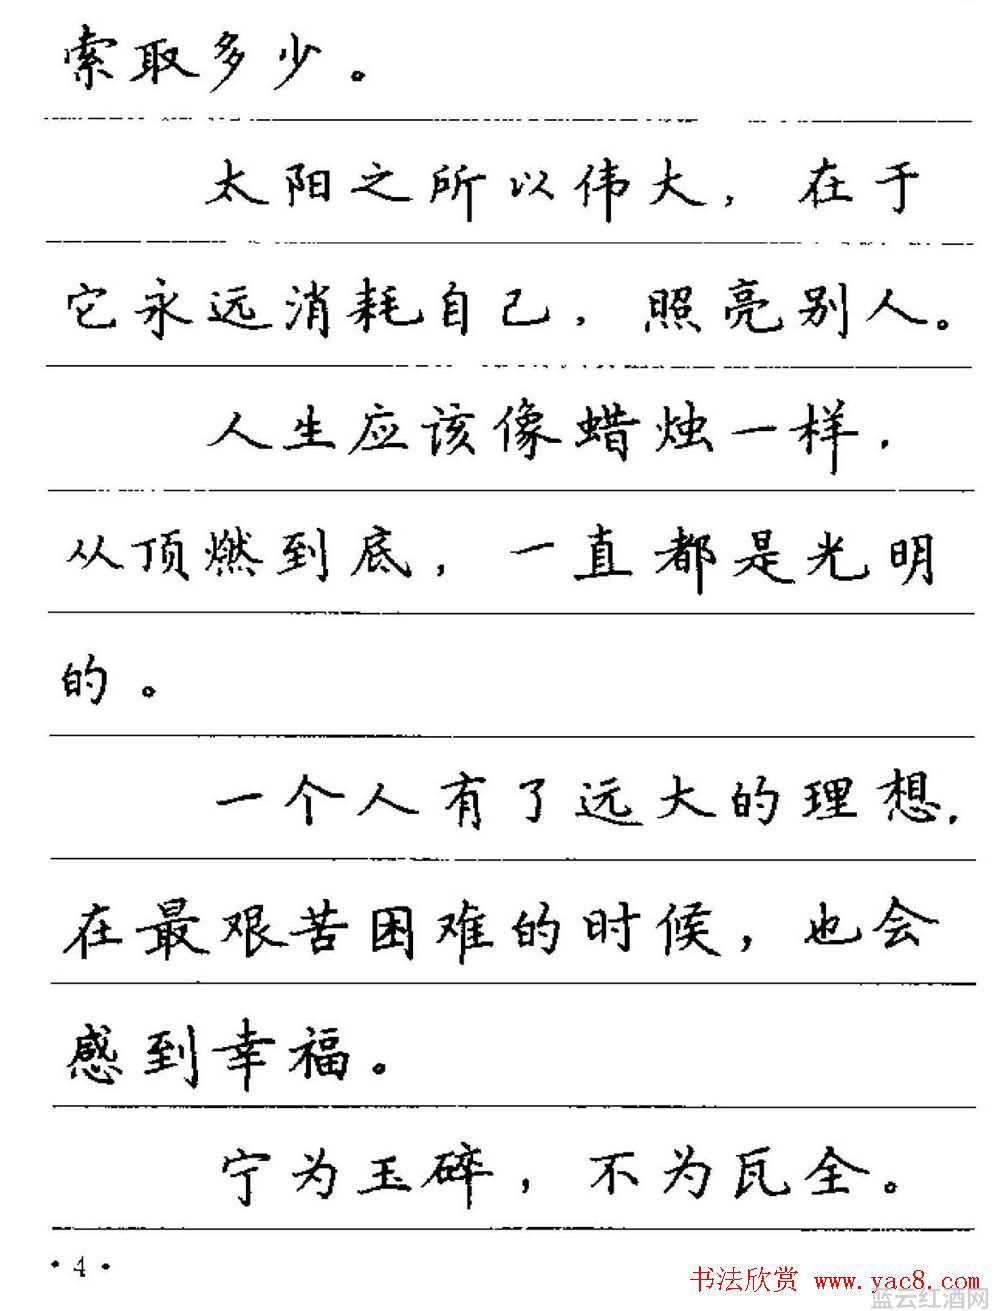 索取多少。
太阳之所以伟大，在于
它永远消耗自己，照亮别人。
人生应该像蜡烛一样，
从顶燃到底，一直都是光明
的。
一个人有了远大的理想，
在最艰苦困难的时候，也会
感到幸福。
宁为玉碎，不为瓦全。
·4·
书法欣赏 www.yac8.com
蓝云红酒网